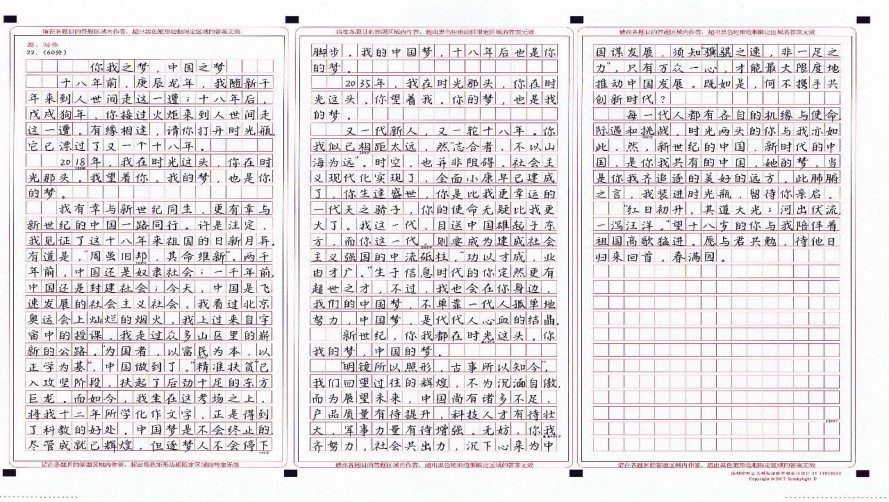 请在各题目的答题区域内作答，超出黑色矩形边框限定区域的答案无效
四、写作
22.（60分）
你我之梦，中国之梦
十八年前，庚辰龙年，我随新千
年来到人世间走这一遭；十八年后，
戊戌狗年，你接过火炬来到人世间走
这一遭。有缘相逢，请你打开时光瓶，
它已漂过了又一个十八年。
2018年，我在时光这头，你在时
光那头。我望着你，我的梦，也是你
的梦。
我有幸与新世纪同生，更有幸与
新世纪的中国一路同行。许是注定，
我见证了这十八年来祖国的日新月异。
有道是，“周虽旧邦，其命维新”。两千
年前，中国还是奴隶社会；一千年前，
中国还是封建社会；今天，中国是飞
速发展的社会主义社会，我看过北京
奥运会上灿烂的烟火，我上过来自宇
宙中的授课，我走过众多山区里的崭
新的公路。“为国者，以富民为本，以
正学为基”，中国做到了。“精准扶贫”已
入攻坚阶段，扶起了后劲十足的东方
巨龙。而如今，我坐在这考场之上，
将我十二年所学化作文字，正是得到
了科教的好处。中国梦是不会终止的，
尽管成就已辉煌，但逐梦人不会停下
请在各题目的答题区域内作答，超出黑色矩形边框限定区域的答案无效
请在各题目的答题区域内作答，超出黑色矩形边框限定区域的答案无效
脚步，我的中国梦，十八年后也是你
的梦。
2035年，我在时光那头，你在时
光这头。你望着我，你的梦，也是我
的梦。
又一代新人，又一轮十八年。你
我似已相距太远，然“志合者，不以山
海为远”。时空，也并非阻碍，社会主
义现代化实现了，全面小康早已建成
了，你生逢盛世，你是比我更幸运的
一代天之骄子，你的使命无疑比我更
大了。我这一代，目送中国雄起于东
方，而你这一代，则要成为建成社会
主义强国的中流砥柱。“功以才成，业
由才广。”生于信息时代的你定然更有
超世之才，不过，我也会在你身边，
我们的中国梦，不单靠一代人孤单地
努力，中国梦，是代代人心血的结晶。
新世纪，你我都在时光这头。你
我的梦，中国的梦。
“明镜所以照形，古事所以知今”，
我们回望过往的辉煌，不为沉湎自傲，
而为展望未来，中国尚有诸多不足，
产品质量有待提升，科技人才有待壮
大，军事力量有待增强。无妨，你我
齐努力，社会共出力，沉下心来为中
请在各题目的答题区域内作答，超出黑色矩形边框限定区域的答案无效
请在各题目的答题区域内作答，超出黑色矩形边框限定区域的答案无效
国谋发展，须知“骐骥之速，非一足之
力”，只有万众一心，才能最大限度地
推动中国发展。既如是，何不携手共
创新时代？
每一代人都有各自的机缘与使命、
际遇和挑战。时光两头的你与我亦如
此，然，新世纪的中国，新时代的中
国，是你我共有的中国，她的梦，当
是你我齐追逐的美好的远方，此肺腑
之言，我装进时光瓶，留待你亲启。
“红日初升，其道大光；河出伏流，
一泻汪洋。”望十八岁的你与我陪伴着
祖国高歌猛进。愿与君共勉，待他日
归来回首，春满园。
请在各题目的答题区域内作答，超出黑色矩形边框限定区域的答案无效